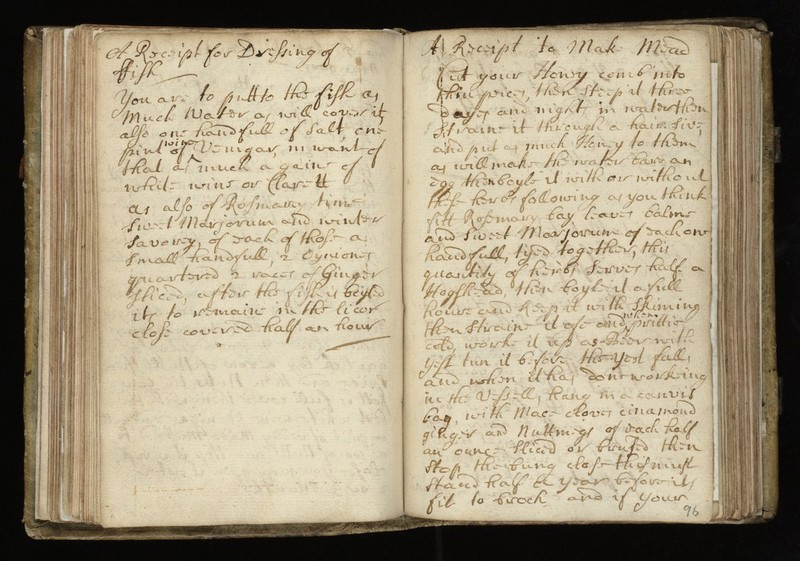 A Receipt for Dressing of
ffish
You are to putt to the fish as
Much Water as will cover it
also one handfull of Salt, one
pint of wine Venigar, in want of
that as much a gaine of
white wine or Clarett
as also of Rosmarey time
Sweet Marjorum and winter
Savorey, of each of those a
Small handfull, 2 Oynions
quartered 2 races of Ginger
sliced, after the fish is boyled
it is to remaine in the licor
close covered half an hour
A Receipt to Make Mead
Put your Honey comb into
thin peices, then steep it three
dayes and night in water then
straine it through a haire Sive,
and put as much Honey to them
as will make the water bare an
egg then boyle it with or without
these herbs following as you think
fitt Rosmary bay leaves balme
and Sweet Marjorume of each one
handfull, tyed together, this
quantity of herbs serves half a
Hogshead, then boyle it a full
houre and keep it with Skiming
then straine it ose and when prittie
cold, worke it up as Beer with
yest tun it before the yest falls
and when it has done working
in the Vessell, hang in a canvis
bag, with Mace cloves cinamond
ginger and Nuttmegs of each half
an ounce sliced or brused then
stop the bung close this must
stand half a year before it is
fit to broch and if your
96